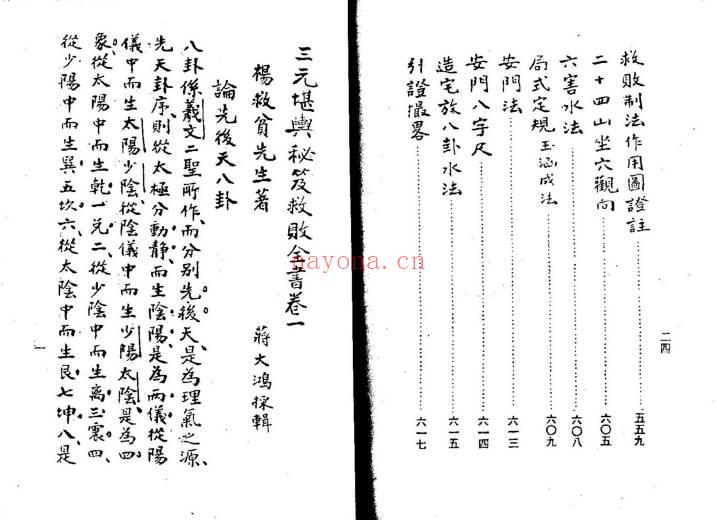 救敗制法作用圖證註……五五九
二十四山坐穴觀向……六〇五
六害水法……六〇八
局式定規玉涵成法……六〇九
安門法……六一三
安門八字尺……六一四
造宅放八卦水法……六一五
引證撮畧……六一七
二四
三元堪輿秘笈救敗全書卷一
楊救貧先生著 蔣大鴻採輯
論先後天八卦
八卦係羲文二聖所作、而分別先後天、是為理氣之源、
先天卦序、則從太極分動靜、而生陰陽、是為兩儀、從陽
儀中而生太陽少陰、從陰儀中而生少陽太陰、是為四
象、從太陽中而生乾一兌二、從少陰中而生離三震四、
從少陽中而生巽五坎六、從太陰中而生艮七坤八、是
一
nayona.cn